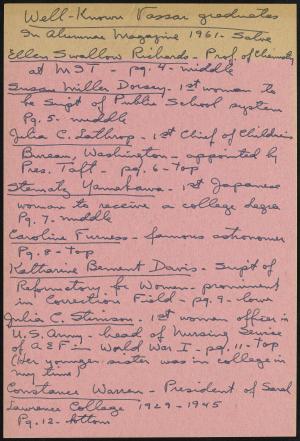 Well-Known Vassar graduates
In Alumnae Magazine 1961 - Save
Ellen Swallow Richards - Prof. of Chemistry
at MIT - pg. 4 - middle
Susan Miller Dorsey - 1st woman to
be Supt of Public School system
Pg. 5 - middle
Julia C. Lathrop - 1st Chief of Children's
Bureau, Washington - appointed by
Pres. Taft - pg. 6 - top
Stematz Yamakawa - 1st Japanese
woman to receive a college degree
Pg. 7 - middle
Caroline Furness - famous astronomer
Pg. 8 - top
Katharine Bement Davis - Supt of
Reformatory for Women - prominent
in Correction Field - pg. 9 - lower
Julia C. Stimson - 1st woman officer in
U.S. Army - head of Nursing Service
of A E F - World War I - pg. 11 - top
(Her younger sister was in college in
my time)
Constance Warren - President of Sarah
Lawrence College 1929 - 1945
Pg. 12 - bottom